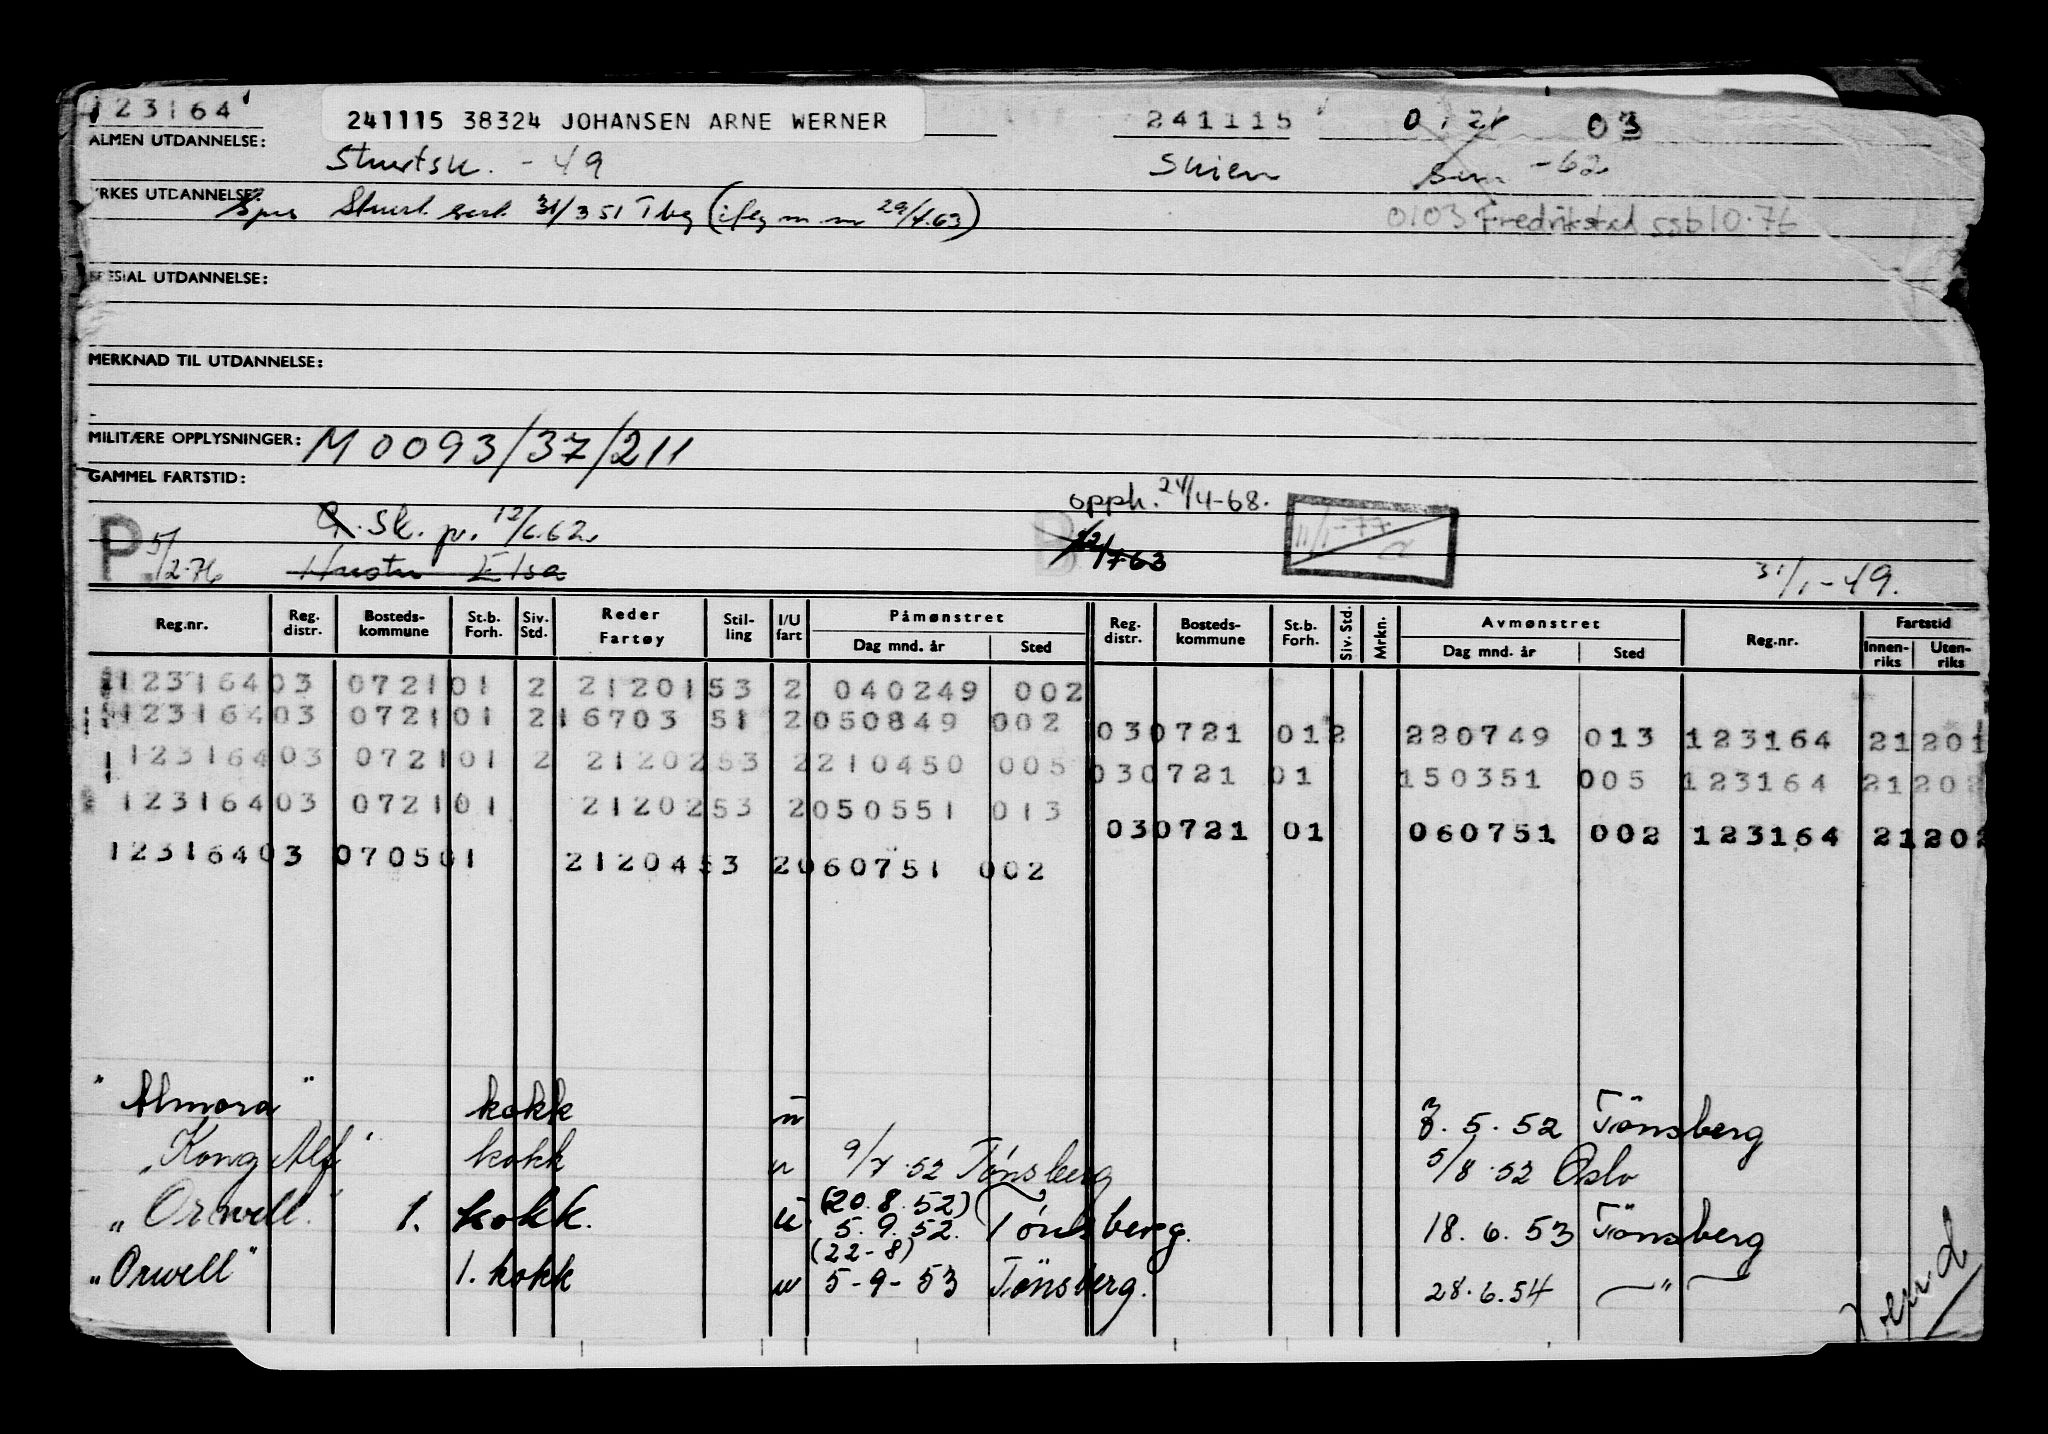 123164 241115 38324 JOHANSEN ARNE WERNER 241115 03
ALMEN UTDANNELSE: Stuertsk. - 49 Skien - 62
RKES UTDANNELSE: Stuert sert. 31/3 51 Tbg 29/4.63) 0103 Fredrikstad ssb 10.76
SIAL UTDANNELSE:
MERKNAD TIL UTDANNELSE:
MILITÆRE OPPLYSNINGER: M 0093/37/211
GAMMEL FARTSTID:
opph. 24/4-68.
Sk. pr. 12/6.62. 11/1-77
P 5/2-76 Hustru Elsa 22/7 63 31/1-49.
Reg.nr. Reg. distr. Bosteds-kommune St.b. Forh. Siv. Std. Reder Fartøy Stil-ling I/U fart Påmønstret Dag mnd. år Sted Reg. distr. Bosteds-kommune St.b. Forh. Siv. Std. Mrkn. Avmønstret Dag mnd. år Sted Reg.nr. Fartstid Innen-riks Uten-riks
123164 03 0721 01 2 21201 53 2 040249 002
123164 03 0721 01 2 16703 51 2 050849 002 03 0721 01 2 220749 013 123164 21 201
123164 03 0721 01 2 21202 53 2 210450 005 03 0721 01 150351 005 123164 21 202
123164 03 0721 01 21202 53 2 050551 013 03 0721 01 060751 002 123164 21 202
123164 03 0705 01 21204 53 2 060751 002
"Almora" kokk u 7.5.52 Tönsberg
"Kong Alf" kokk u 9/7.52 Tönsberg 5/8.52 Oslo
"Orwell" 1. kokk. u (20.8.52) 5.9.52. Tönsberg. 18.6.53 Tönsberg
"Orwell" 1. kokk u (22-8) 5-9-53 Tönsberg. 28.6.54 —"—